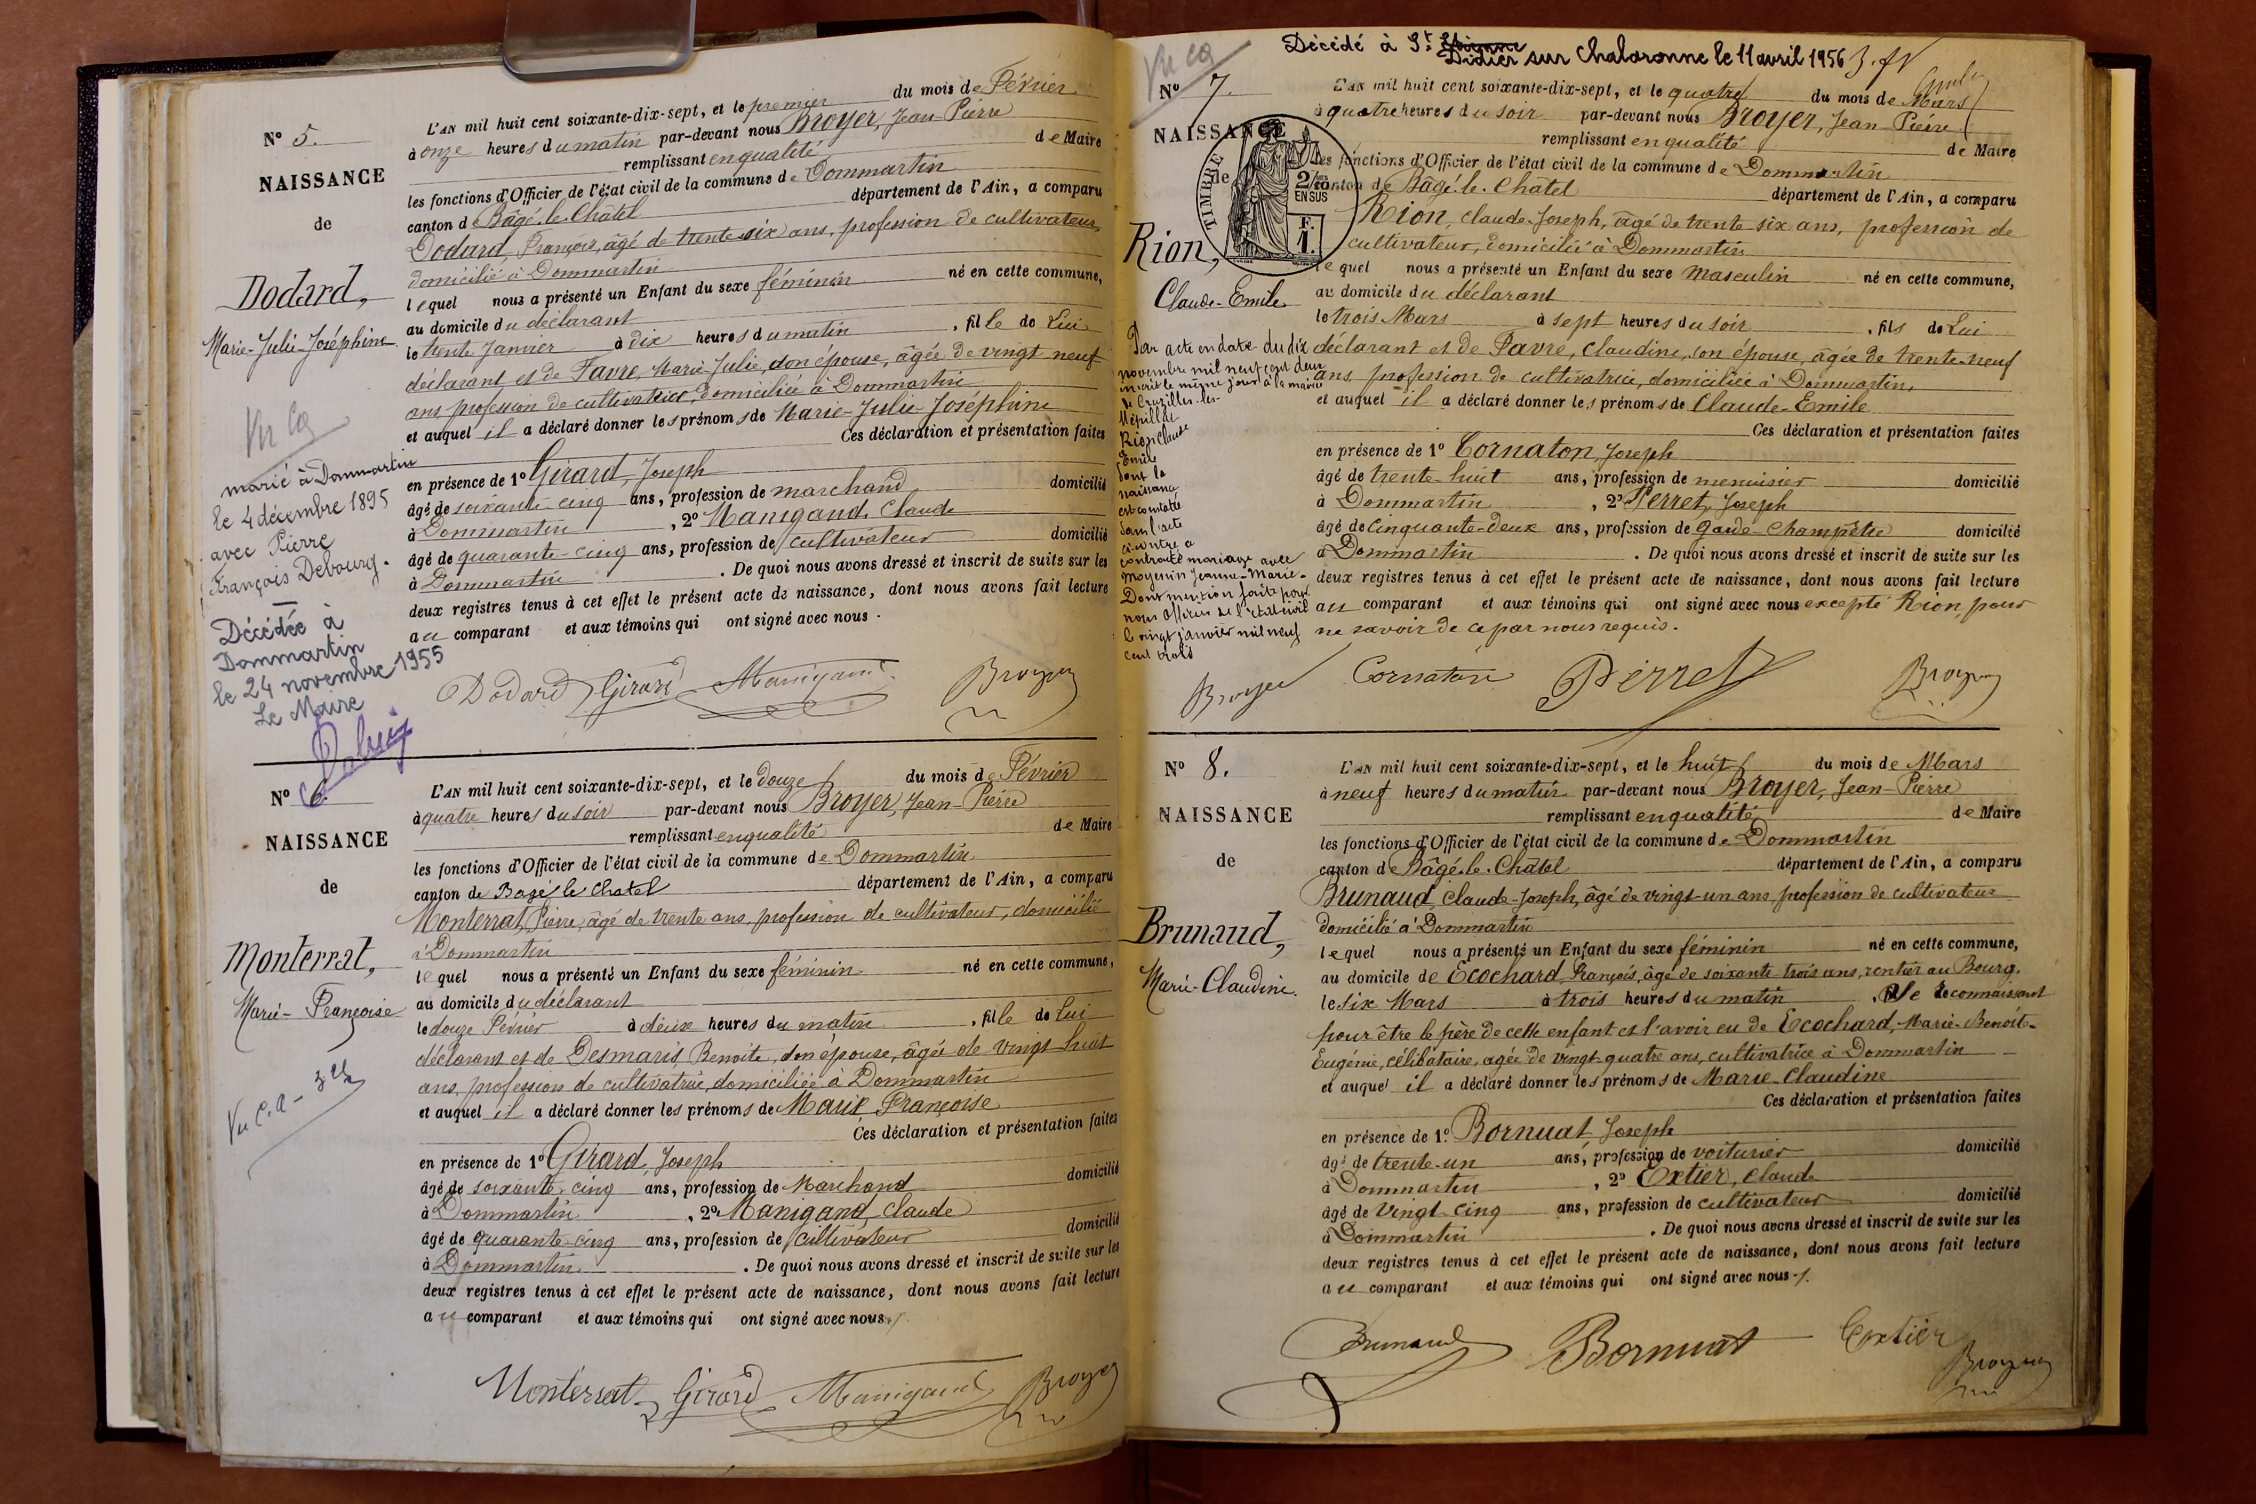 N° 5.
NAISSANCE
de
Dodard,
Marie-Julie-Joséphine
Vu
marié à Dommartin
le 4 décembre 1895
avec Pierre
François Debourg.
Décédée à
Dommartin
le 24 novembre 1955
Le Maire
L'AN mil huit cent soixante-dix-sept, et le premier du mois de Février
à onze heures du matin par-devant nous Broyer, Jean Pierre
remplissant en qualité de Maire
les fonctions d'Officier de l'état civil de la commune de Dommartin
canton de Bâgé-le-Châtel département de l'Ain, a comparu
Dodard, François, âgé de trente six ans, profession de cultivateur,
domicilié à Dommartin
lequel nous a présenté un Enfant du sexe féminin né en cette commune,
au domicile du déclarant
le trente Janvier à dix heures du matin, fille de Lui
déclarant et de Favre, Marie-Julie, son épouse, âgée de vingt neuf
ans profession de cultivatrice, domiciliée à Dommartin
et auquel il a déclaré donner les prénoms de Marie-Julie-Joséphine
Ces déclaration et présentation faites
en présence de 1° Girard, Joseph
âgé de soixante-cinq ans, profession de marchand domicilié
à Dommartin, 2° Manigand, Claude
âgé de quarante-cinq ans, profession de cultivateur domicilié
à Dommartin. De quoi nous avons dressé et inscrit de suite sur les
deux registres tenus à cet effet le présent acte de naissance, dont nous avons fait lecture
au comparant et aux témoins qui ont signé avec nous.
Dodard Girard Manigand Broyer
N° 6.
NAISSANCE
de
Monterrat,
Marie-Françoise
Vu C.A-
L'AN mil huit cent soixante-dix-sept, et le douze du mois de Février
à quatre heures du soir par-devant nous Broyer, Jean-Pierre
remplissant en qualité de Maire
les fonctions d'Officier de l'état civil de la commune de Dommartin
canton de Bagé le Chatel département de l'Ain, a comparu
Monterrat, Pierre, âgé de trente ans, profession de cultivateur, domicilié
à Dommartin
lequel nous a présenté un Enfant du sexe féminin né en cette commune,
au domicile du déclarant
le douze Février à deux heures du matin, fille de Lui
déclarant et de Desmaris Benoite, son épouse, âgée de vingt huit
ans, profession de cultivatrice, domiciliée à Dommartin
et auquel il a déclaré donner les prénoms de Marie Françoise
Ces déclaration et présentation faites
en présence de 1° Girard, Joseph
âgé de soixante-cinq ans, profession de Marchand domicilié
à Dommartin, 2° Manigand, Claude
âgé de quarante-cinq ans, profession de cultivateur domicilié
à Dommartin. De quoi nous avons dressé et inscrit de suite sur les
deux registres tenus à cet effet le présent acte de naissance, dont nous avons fait lecture
au comparant et aux témoins qui ont signé avec nous.
Monterrat Girard Manigand Broyer
Décédé à St. Etienne
Didier sur Chalaronne le 11 avril 1956
N° 7.
NAISSANCE
de
TIMBRE
2/10es
EN SUS
F.
1.
Rion,
Claude-Emile
Par acte en date du dix
novembre mil neuf cent deux
inscrit le même jour à la mairie
de Cruzilles-les-
Mépillat
Rion Claude
Emile
dont la
naissance
est constatée
dans l'acte
ci-contre a
contracté mariage avec
Moyemin Jeanne-Marie-
Dont mention faite par
nous Officier de l'état civil
le vingt janvier mil neuf
cent trois
Broyer
L'AN mil huit cent soixante-dix-sept, et le quatre du mois de Mars
à quatre heures du soir par-devant nous Broyer, Jean-Pierre
remplissant en qualité de Maire
les fonctions d'Officier de l'état civil de la commune de Dommartin
canton de Bâgé-le-Châtel département de l'Ain, a comparu
Rion, Claude-Joseph, âgé de trente six ans, profession de
cultivateur, domicilié à Dommartin
lequel nous a présenté un Enfant du sexe masculin né en cette commune,
au domicile du déclarant
le trois Mars à sept heures du soir, fils de Lui
déclarant et de Favre, Claudine, son épouse, âgée de trente-neuf
ans, profession de cultivatrice, domiciliée à Dommartin,
et auquel il a déclaré donner les prénoms de Claude-Emile
Ces déclaration et présentation faites
en présence de 1° Cornaton, Joseph
âgé de trente-huit ans, profession de menuisier domicilié
à Dommartin, 2° Perret, Joseph
âgé de cinquante-deux ans, profession de garde-champêtre domicilié
à Dommartin. De quoi nous avons dressé et inscrit de suite sur les
deux registres tenus à cet effet le présent acte de naissance, dont nous avons fait lecture
au comparant et aux témoins qui ont signé avec nous excepté Rion, pour
ne savoir de ce par nous requis.
Cornaton Perret Broyer
N° 8.
NAISSANCE
de
Brunaud,
Marie-Claudine.
L'AN mil huit cent soixante-dix-sept, et le huit du mois de Mars
à neuf heures du matin par-devant nous Broyer, Jean-Pierre
remplissant en qualité de Maire
les fonctions d'Officier de l'état civil de la commune de Dommartin
canton de Bâgé-le-Châtel département de l'Ain, a comparu
Brunaud, Claude-Joseph, âgé de vingt-un ans, profession de cultivateur
domicilié à Dommartin
lequel nous a présenté un Enfant du sexe féminin né en cette commune,
au domicile de Ecochard, François, âgé de soixante trois ans, rentier au Bourg,
le six Mars à trois heures du matin, se reconnaissant
pour être le père de cette enfant et l'avoir eu de Ecochard, Marie-Benoite-
Eugénie, célibataire, agée de vingt-quatre ans, cultivatrice à Dommartin
et auquel il a déclaré donner les prénoms de Marie-Claudine
Ces déclaration et présentation faites
en présence de 1° Bornuat, Joseph
âgé de trente-un ans, profession de voiturier domicilié
à Dommartin, 2° Extier, Claude
âgé de vingt-cinq ans, profession de cultivateur domicilié
à Dommartin. De quoi nous avons dressé et inscrit de suite sur les
deux registres tenus à cet effet le présent acte de naissance, dont nous avons fait lecture
au comparant et aux témoins qui ont signé avec nous.
Brunaud Bornuat Extier Broyer